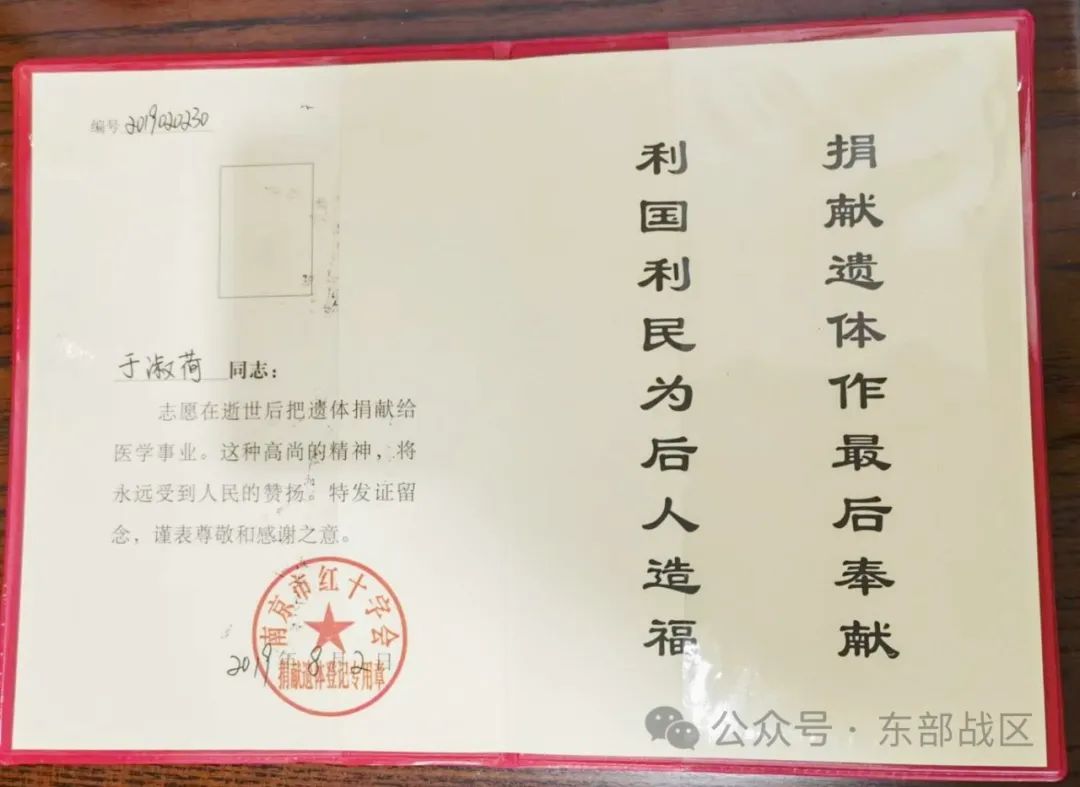 编号 2019020230
于淑荷 同志：
志愿在逝世后把遗体捐献给
医学事业。这种高尚的精神，将
永远受到人民的赞扬。特发证留
念，谨表尊敬和感谢之意。
南京市红十字会
2019年8月2日
捐献遗体登记专用章
捐献遗体作最后奉献
利国利民为后人造福
公众号·东部战区